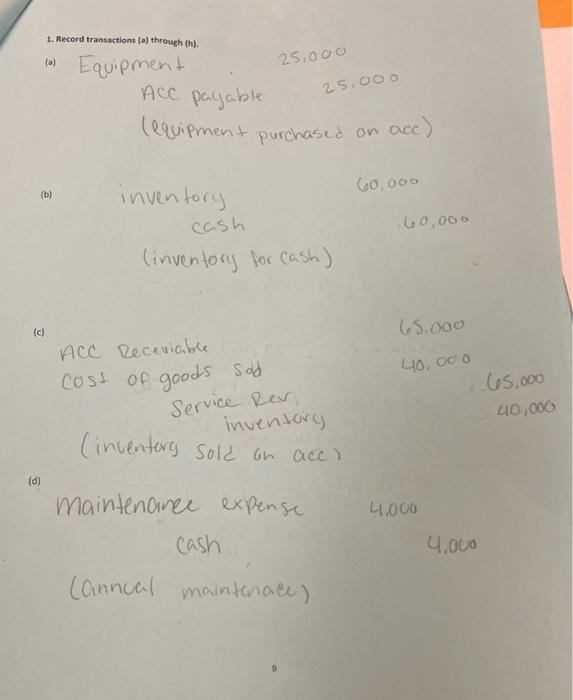 1. Record transactions (a) through (h).
(a) Equipment 25,000
Acc payable 25,000
(equipment purchased on acc)
(b) inventory 60,000
cash 60,000
(inventory for cash)
(c) Acc Receviable 65,000
Cost of goods Sod 40,000
Service Rev, 65,000
inventory 40,000
(inventory Sold on acc)
(d) Maintenance expense 4,000
cash 4,000
(annual maintenace)
9